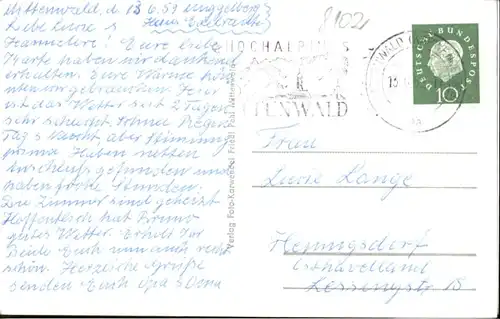 Mittenwald, d 13 6.59
Liebe Lucie &
Hannelore! Eure liebe
Karte haben wir dankend
erhalten. Eure Wärme könn
ten wir gebrauchen. Hier
ist das Wetter seit 2 Tagen
sehr schlecht, Regen
Tag & Nacht, aber Stimmung
prima. Haben netten
Anschluß gefunden und
haben frohe Stunden.
Die Zimmer sind geheizt
Hoffentlich hat Bruno
gutes Wetter. Erholt
beide Euch nun auch recht
schön. Herzliche Grüße
senden Euch Opa & Oma
81021
HOCHALPINES
TTENWALD
DEUTSCHE BUNDESPOST
10
Verlag Foto-Karwendel Friedl Pohl Mittenwald
Frau
Lucie Lange
Hennigsdorf
Osthavelland
Lessingstr